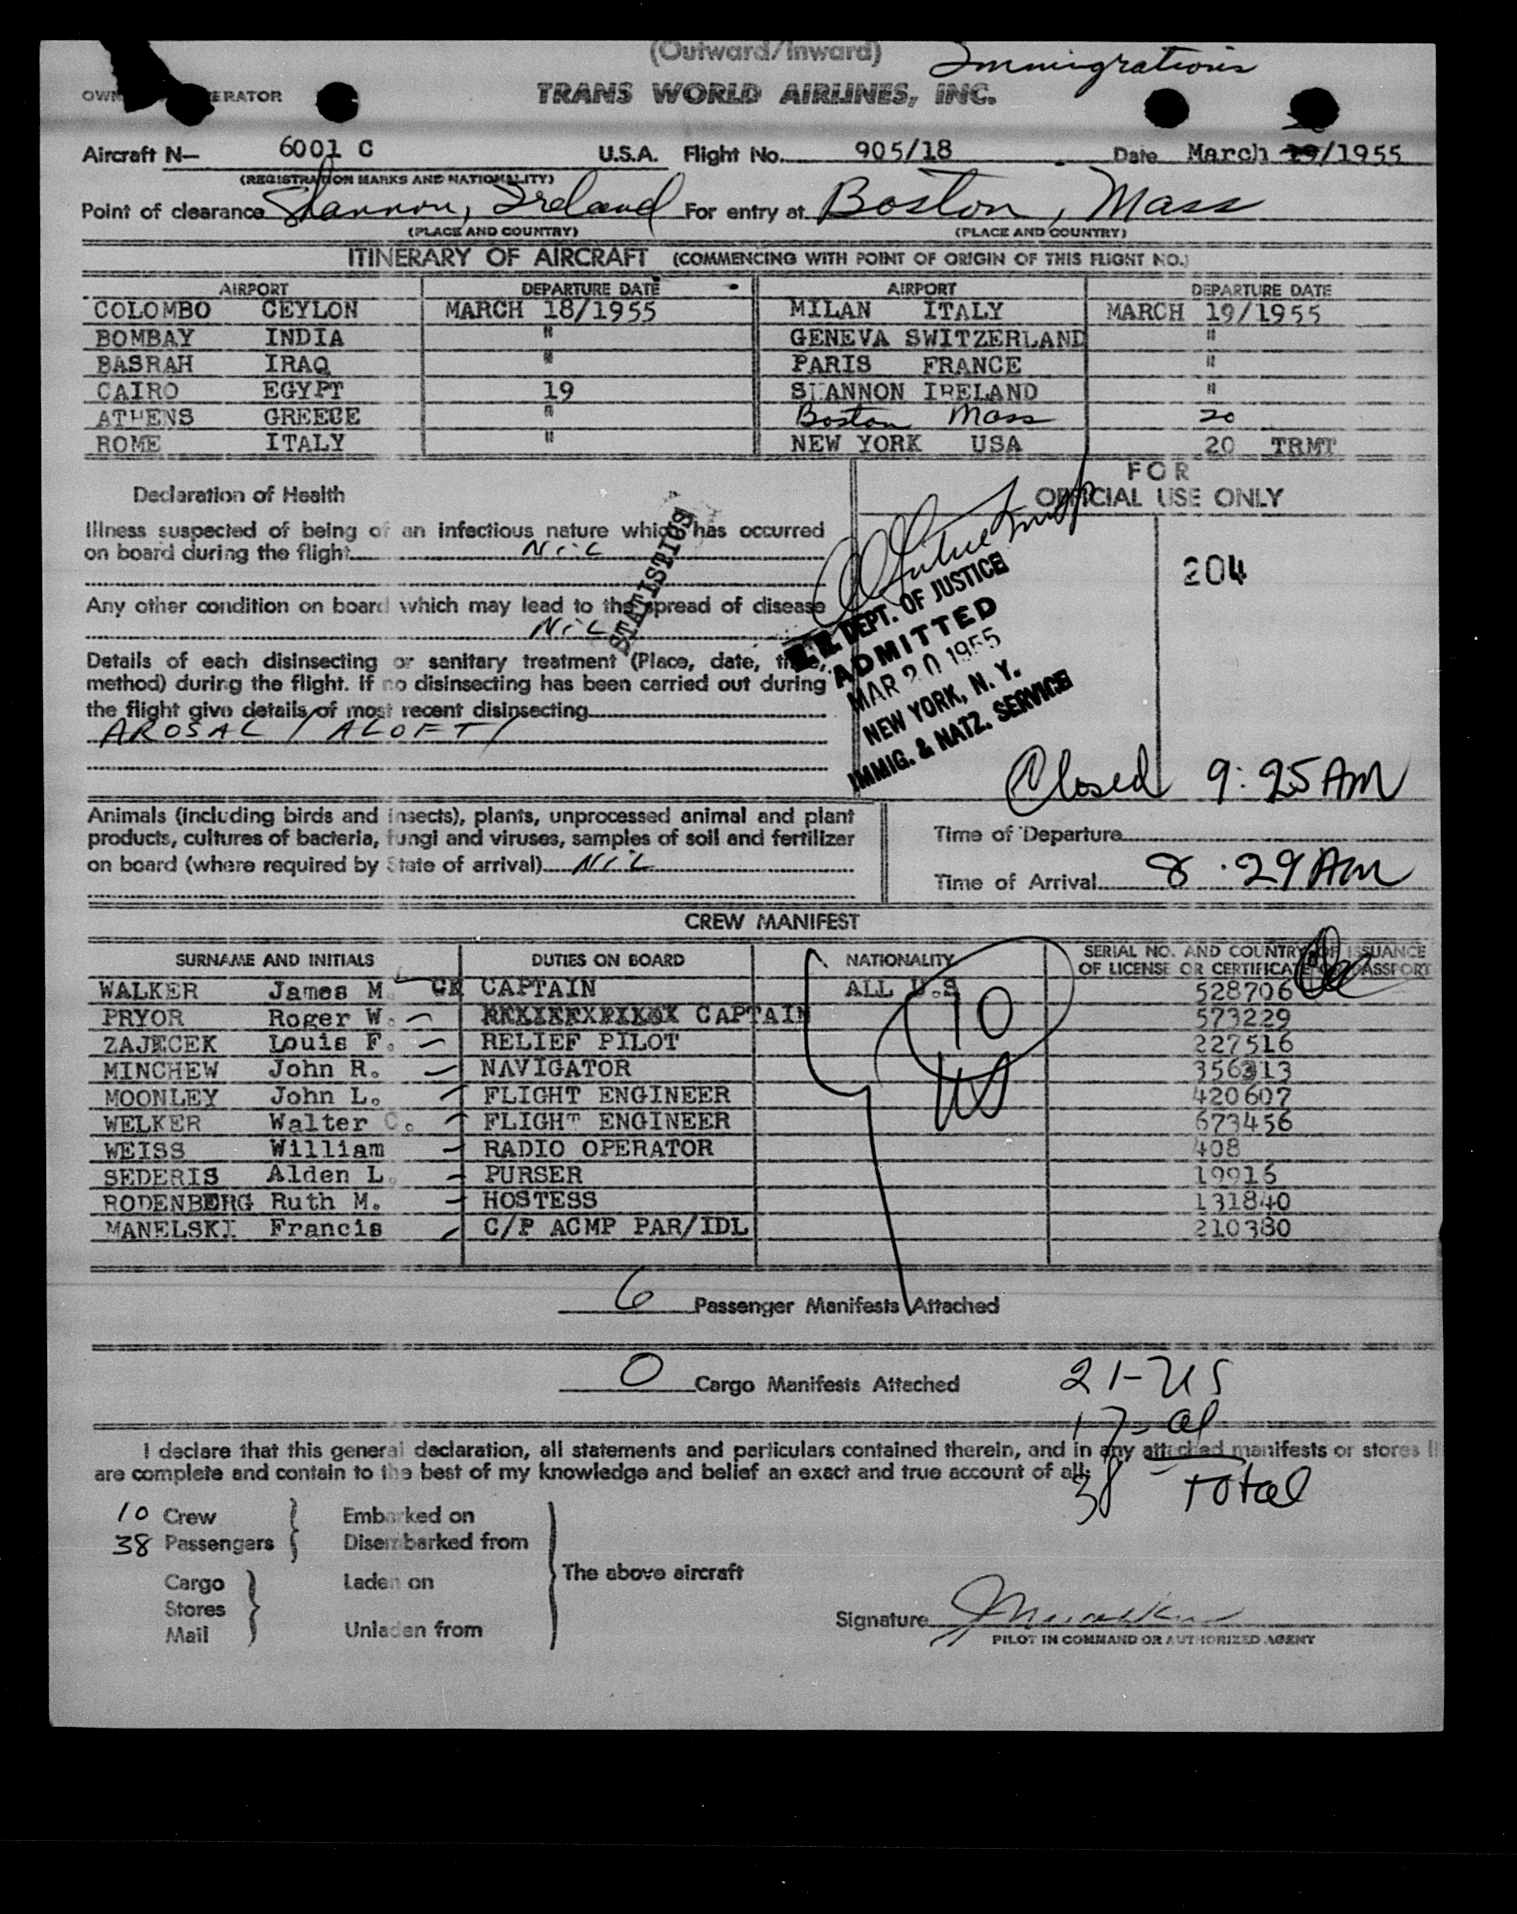 (Outward/Inward)
Immigrations
OWN ERATOR
TRANS WORLD AIRLINES, INC.
Aircraft N— 6001 C U.S.A. Flight No. 905/18 Date March 19/1955
(REGISTRATION MARKS AND NATIONALITY)
Point of clearance Shannon, Ireland For entry at Boston, Mass
(PLACE AND COUNTRY) (PLACE AND COUNTRY)
ITINERARY OF AIRCRAFT (COMMENCING WITH POINT OF ORIGIN OF THIS FLIGHT NO.)
AIRPORT DEPARTURE DATE AIRPORT DEPARTURE DATE
COLOMBO CEYLON MARCH 18/1955 MILAN ITALY MARCH 19/1955
BOMBAY INDIA " GENEVA SWITZERLAND "
BASRAH IRAQ " PARIS FRANCE "
CAIRO EGYPT 19 SHANNON IRELAND "
ATHENS GREECE " Boston Mass 20
ROME ITALY " NEW YORK USA 20 TRMT
FOR
OFFICIAL USE ONLY
Declaration of Health
Illness suspected of being of an infectious nature which has occurred
on board during the flight Nil
STATISTICS
204
Any other condition on board which may lead to the spread of disease
Nil
DEPT. OF JUSTICE
ADMITTED
MAR 20 1955
NEW YORK, N. Y.
IMMIG. & NATZ. SERVICE
Details of each disinsecting or sanitary treatment (Place, date, time,
method) during the flight. If no disinsecting has been carried out during
the flight give details of most recent disinsecting
AROSAL / ALOFT /
Closed 9:25 AM
Animals (including birds and insects), plants, unprocessed animal and plant
products, cultures of bacteria, fungi and viruses, samples of soil and fertilizer
on board (where required by State of arrival) Nil
Time of Departure
Time of Arrival 8.29 AM
CREW MANIFEST
SURNAME AND INITIALS DUTIES ON BOARD NATIONALITY SERIAL NO. AND COUNTRY OF ISSUANCE
OF LICENSE OR CERTIFICATE OR PASSPORT
WALKER James M. CK CAPTAIN ALL U.S 528706
PRYOR Roger W. CAPTAIN 573229
ZAJECEK Louis F. RELIEF PILOT 227516
MINCHEW John R. NAVIGATOR 356313
MOONLEY John L. FLIGHT ENGINEER 420607
WELKER Walter C. FLIGHT ENGINEER 673456
WEISS William RADIO OPERATOR 408
SEDERIS Alden L. PURSER 19916
RODENBERG Ruth M. HOSTESS 131840
MANELSKI Francis C/P ACMP PAR/IDL 210380
10
US
6 Passenger Manifests Attached
0 Cargo Manifests Attached
21-US
17-al
38 Total
I declare that this general declaration, all statements and particulars contained therein, and in any attached manifests or stores
are complete and contain to the best of my knowledge and belief an exact and true account of all:
10 Crew Embarked on
38 Passengers Disembarked from
The above aircraft
Cargo Laden on
Stores
Mail Unladen from
Signature
PILOT IN COMMAND OR AUTHORIZED AGENT